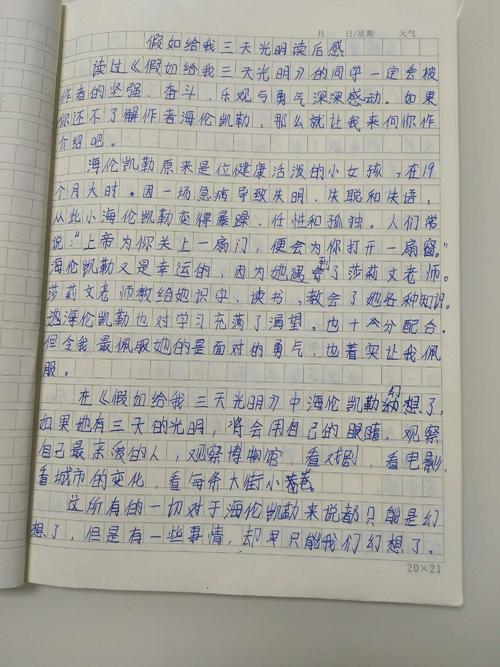 月 日/星期 天气
假如给我三天光明读后感
读过《假如给我三天光明》的同学一定会被
作者的坚强、奋斗、乐观与勇气深深感动。如果
你还不了解作者海伦凯勒,那么就让我来向你作
介绍吧。
海伦凯勒原来是位健康活泼的小女孩,在19
个月大时。因一场急病导致失明、失聪和失语,
从此小海伦凯勒变得暴躁、任性和孤独。人们常
说:“上帝为你关上一扇门,便会为你打开一扇窗。”
海伦凯勒又是幸运的,因为她遇到了莎莉文老师。
莎莉文老师教给她识字、读书,教会了她各种知识。
她海伦凯勒也对学习充满了渴望,也十分配合。
但令我最佩服她的是面对的勇气,也着实让我佩
服。
在《假如给我三天光明》中海伦凯勒幻想了,
如果她有三天的光明,将会用自己的眼睛,观察
自己最亲爱的人,观察博物馆,看戏剧,看电影,
看城市的变化,看每条大街小巷
这所有的一切对于海伦凯勒来说都只能是幻
想了,但是有一些事情,却早只能我们幻想了。
20×21